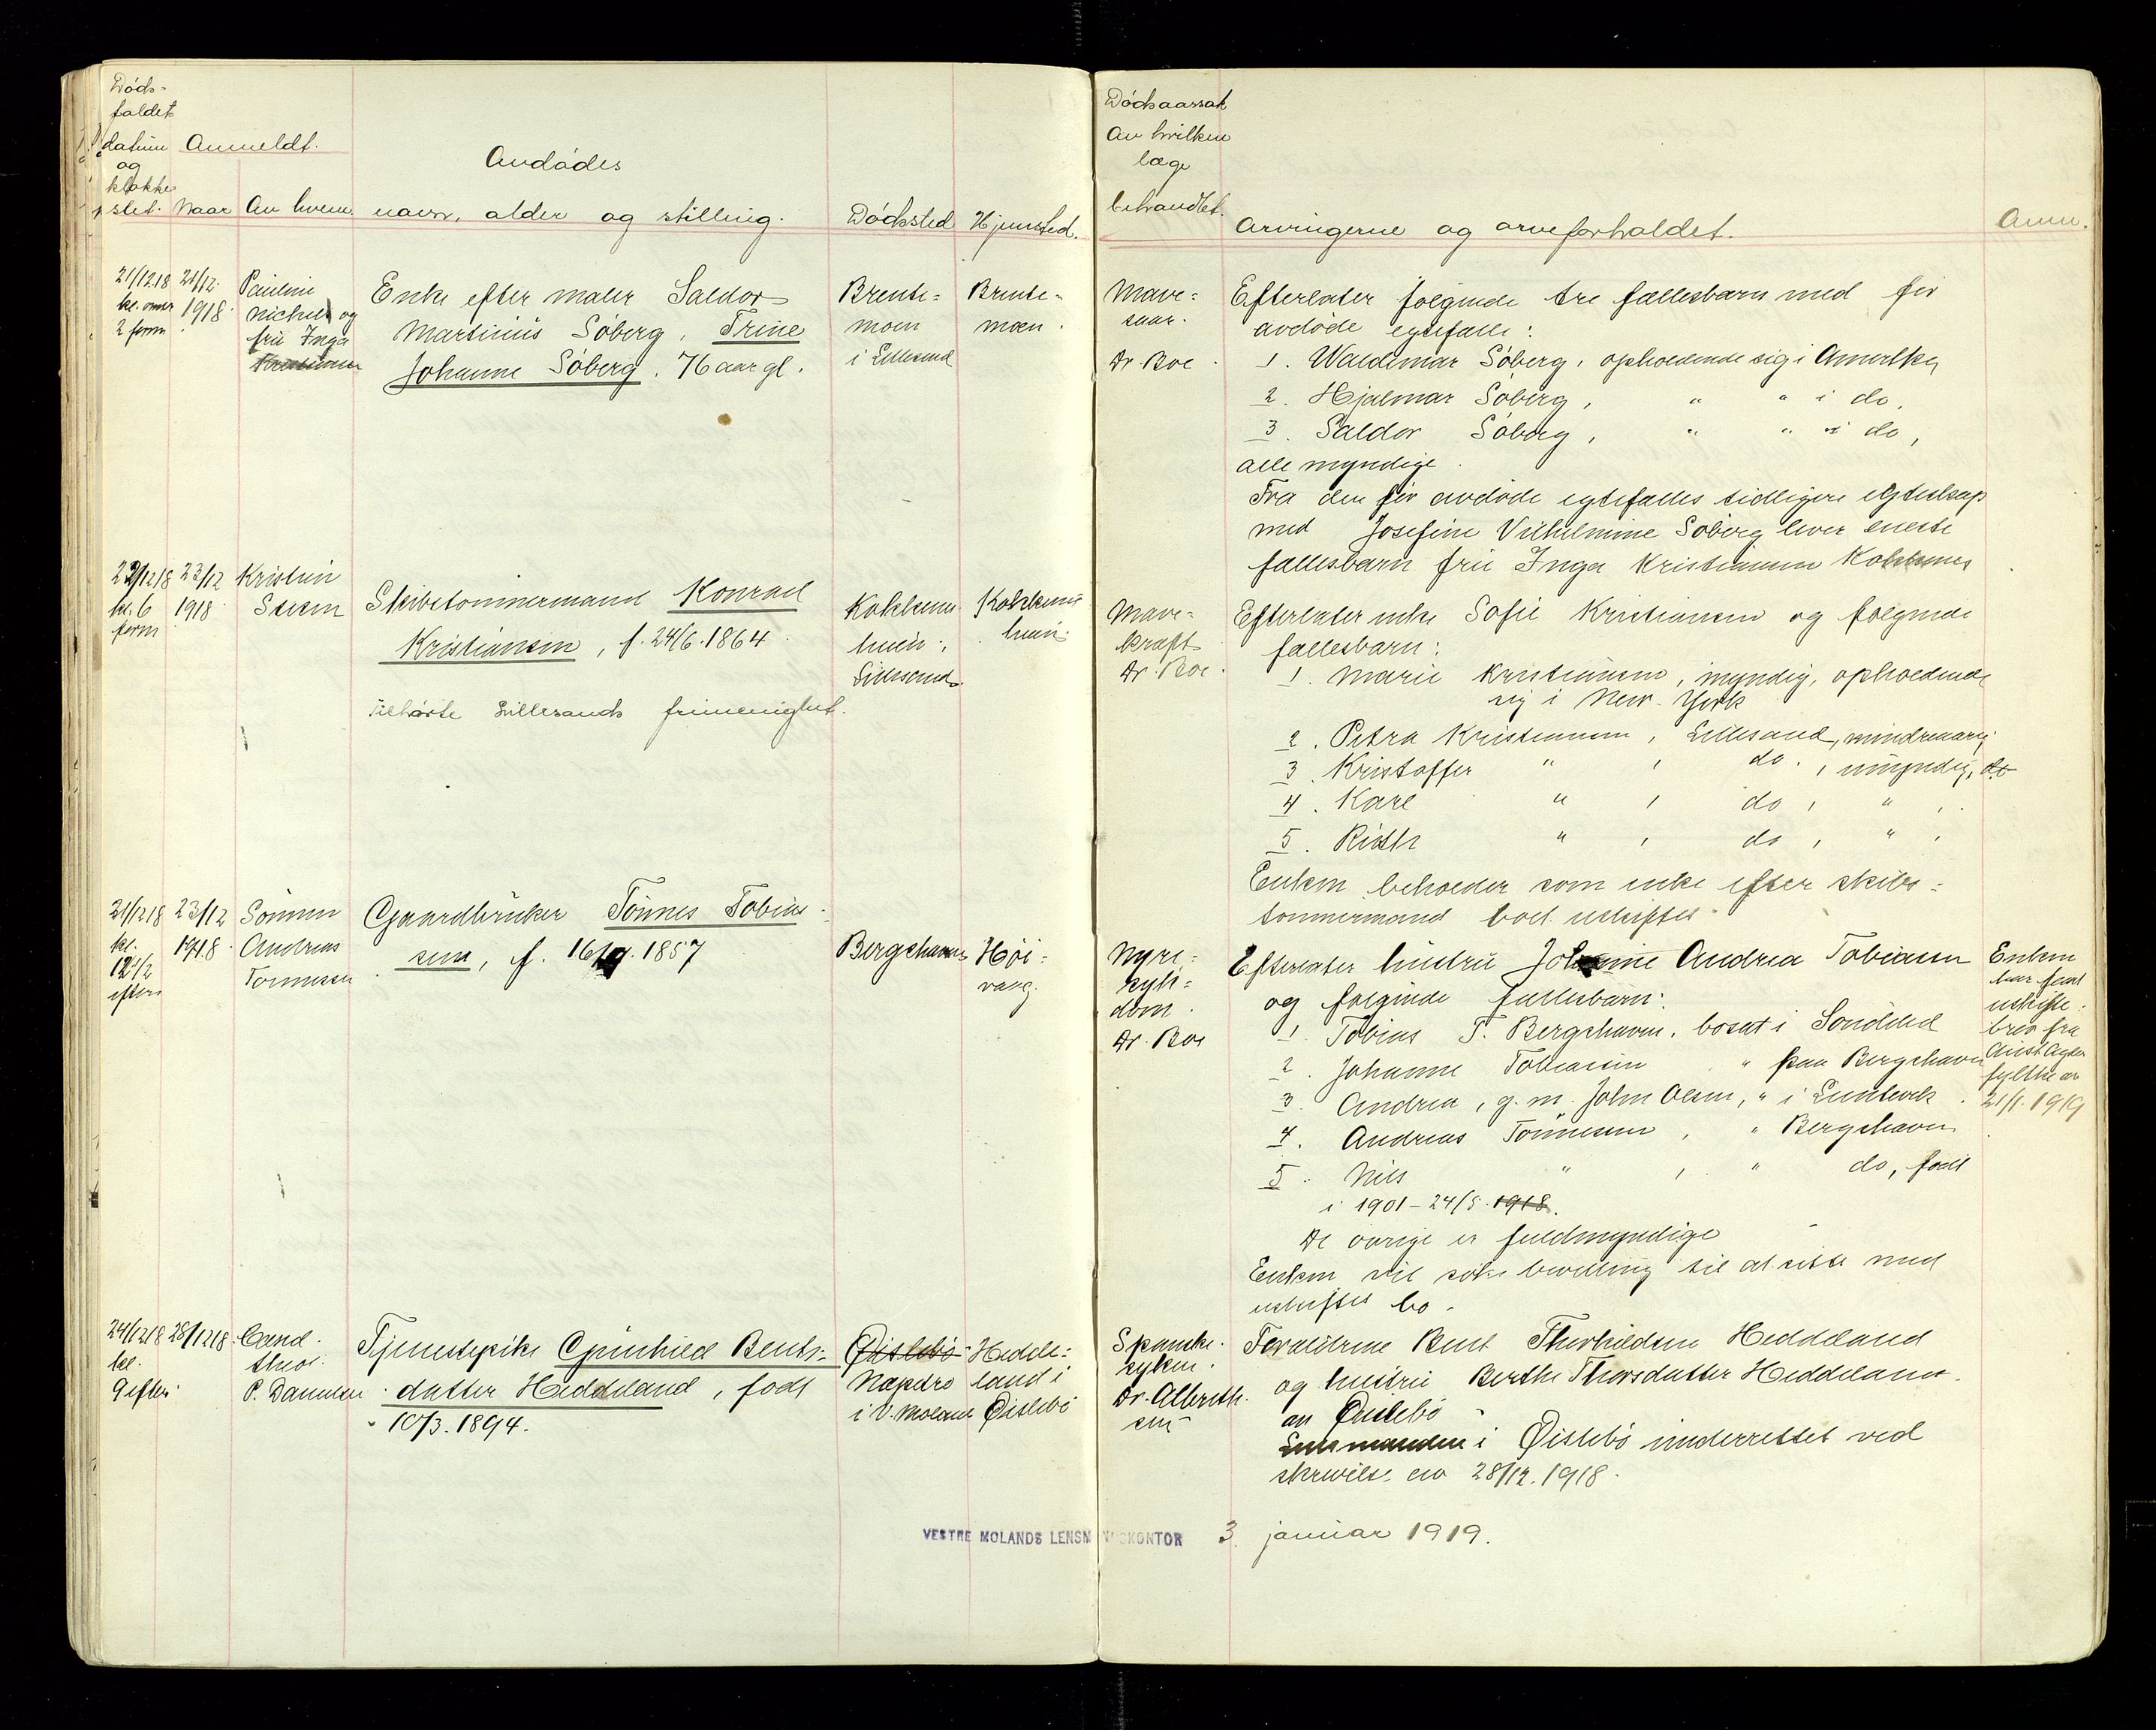 Døds-
faldet
datum
og
klokke
slet.
Anmeldt.
Naar
Av hvem
Avdødes
navn, alder og stilling.
Dødssted
Hjemsted.
Dødsaarsak
Av hvilken
læge
behandlet.
Arvingerne og arveforholdet.
Anm.
21/12.18
kl.
2 form
21/12.
1918.
Pauline
Michels og
fru Inga
Kristiansen
Enke efter maler Saldor
Martinius Søberg, Trine
Johanne Søberg. 76 aar gl.
Brente-
moen
i Lillesand
Brente-
moen.
Mave-
saar.
Dr Boe.
Efterlater følgende tre fællesbarn med før
avdøde egtefælle:
1. Waldemar Søberg, opholdende sig i Amerika,
2. Hjalmar Søberg, " " i do,
3. Saldor Søberg, " " i do,
alle myndige.
Fra den før avdøde egtefælles tidligere egteskap
med Josefine Vilhelmine Søberg lever eneste
fællesbarn fru Inga Kristiansen Kokkenes.
22/12 18
kl. 6
form
23/12
1918
Kristian
Steen
Skibstømmermand Konrad
Kristiansen, f. 24/6.1864.
Tilhørte Lillesands frimenighet.
Kokkenes
heien,
Lillesand.
Kokkenes
heien.
Mave-
kræft
Dr. Boe.
Efterlater enke Sofie Kristiansen og følgende
fællesbarn:
1. Marie Kristiansen, myndig, opholdende
sig i New-York
2. Petra Kristiansen, Lillesand, mindreaarig
3. Kristoffer " , do. , umyndig, do
4. Karl " , do , " , .
5. Ruth " , do , " ,
Enken beholder som enke efter skibs-
tømmermand boet uskiftet.
21/12 18
kl.
12 1/2
efterm
23/12
1918.
Sønnen
Andreas
Tønnesen
Gaardbruker Tønnes Tobias-
sen, f. 16/ .1857
Bergshavn
Høi-
vaag.
Nyre-
syk-
dom.
Dr. Boe
Efterlater hustru Johanne Andrea Tobiassen
og følgende fællesbarn:
1. Tobias T. Bergshavn, bosat i Søndeled
2. Johanne Tobiassen " paa Bergshavn
3. Andrea, g. m. John Olsen, " i Lunkevik.
4. Andreas Tønnesen, " Bergshavn.
5. Nils " , " do, født
i 1901 - 24/5. 1918.
De øvrige er fuldmyndige
Enken vil søke bevilling til at sitte med
uskiftet bo.
Enken
har faat
uskifte-
brev fra
Aust Agder
fylke av
21/1. 1919
24/12 18
kl.
9 efterm
28/12 18.
Cand.
theol.
P. Danielsen
Tjenestepike Gunhild Bents-
datter Heddeland, født
10/3. 1894.
Øislebø
Næpdro
i V. Moland
Hedde-
land i
Øislebø
Spanske-
syken.
Dr. Albreth-
sen
Forældrene Bent Thorkildsen Heddeland
og hustru Berthe Thorsdatter Heddeland.
av Øislebø
Lensmanden i Øislebø underrettet ved
skrivelse av 28/12. 1918.
VESTRE MOLANDS LENSM NSKONTOR 3. januar 1919.